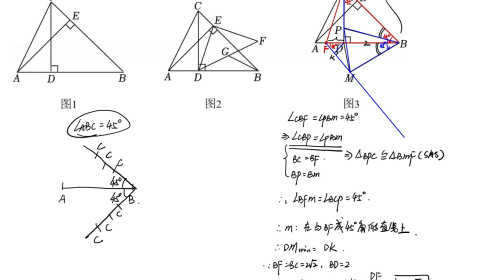 E
A D B
图1
C
E
F
G
A D B
图2
P
A F B
K 2
M
图3
∠ABC=45°
C C C
45°
A B
45°
C C C
∠CBF=∠PBM=45°
⇒∠CBP=∠FBM
BC=BF
BP=BM
⇒△BPC≌△BMF(SAS)
∴∠BFM=∠BCP=45°
∴DMmin=DK.
∵BF=BC=2√2, BD=2
DF